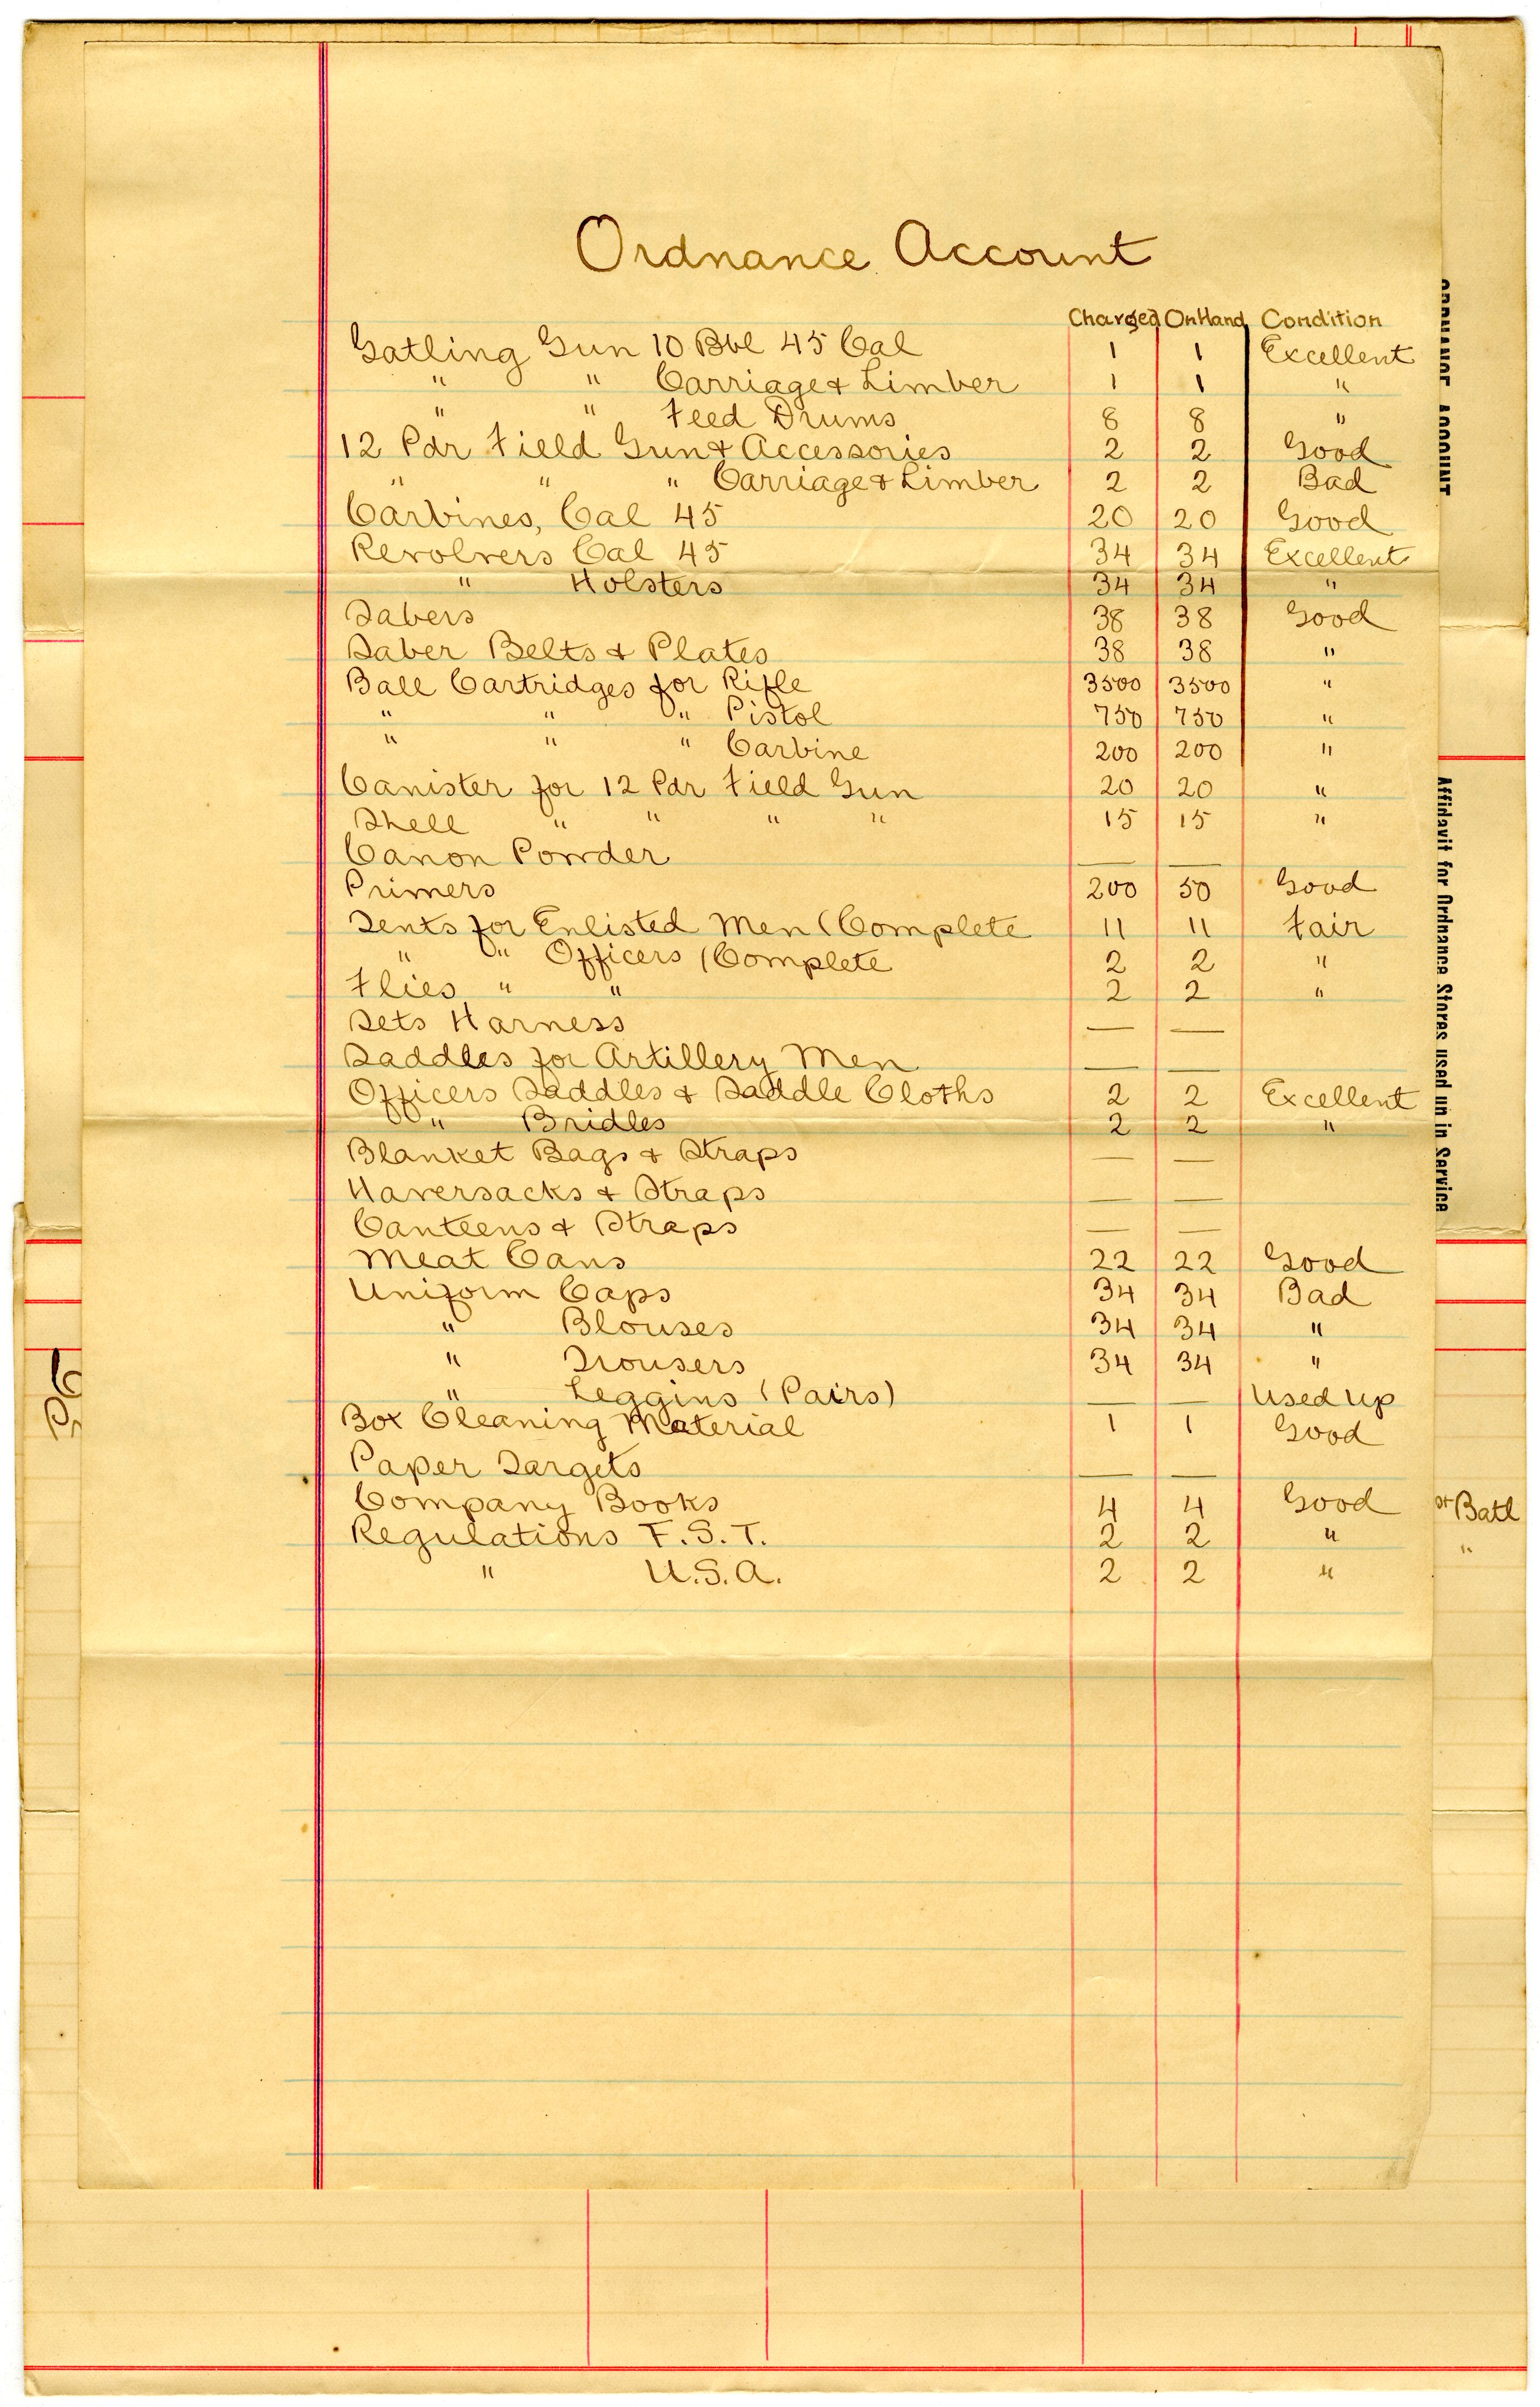 Ordnance Account
Charged On Hand Condition
Gatling Gun 10 Bbl 45 Cal 1 1 Excellent
" " Carriage & Limber 1 1 "
" " Feed Drums 8 8 "
12 Pdr Field Gun & Accessories 2 2 Good
" " " Carriage & Limber 2 2 Bad
Carbines, Cal 45 20 20 Good
Revolvers Cal 45 34 34 Excellent
" Holsters 34 34 "
Sabers 38 38 Good
Saber Belts & Plates 38 38 "
Ball Cartridges for Rifle 3500 3500 "
" " " Pistol 750 750 "
" " " Carbine 200 200 "
Canister for 12 Pdr Field Gun 20 20 "
Shell " " " " 15 15 "
Canon Powder — —
Primers 200 50 Good
Tents for Enlisted Men (Complete 11 11 Fair
" " Officers (Complete 2 2 "
Flies " " 2 2 "
Sets Harness — —
Saddles for Artillery Men — —
Officers Saddles & Saddle Cloths 2 2 Excellent
" Bridles 2 2 "
Blanket Bags & Straps — —
Haversacks & Straps — —
Canteens & Straps — —
Meat Cans 22 22 Good
Uniform Caps 34 34 Bad
" Blouses 34 34 "
" Trousers 34 34 "
" Leggins (Pairs) — — Used up
Box Cleaning Material 1 1 Good
Paper Targets — —
Company Books 4 4 Good
Regulations F.S.T. 2 2 "
" U.S.A. 2 2 "
ORDNANCE ACCOUNT
Affidavit for Ordnance Stores used up in Service
or Batl
"